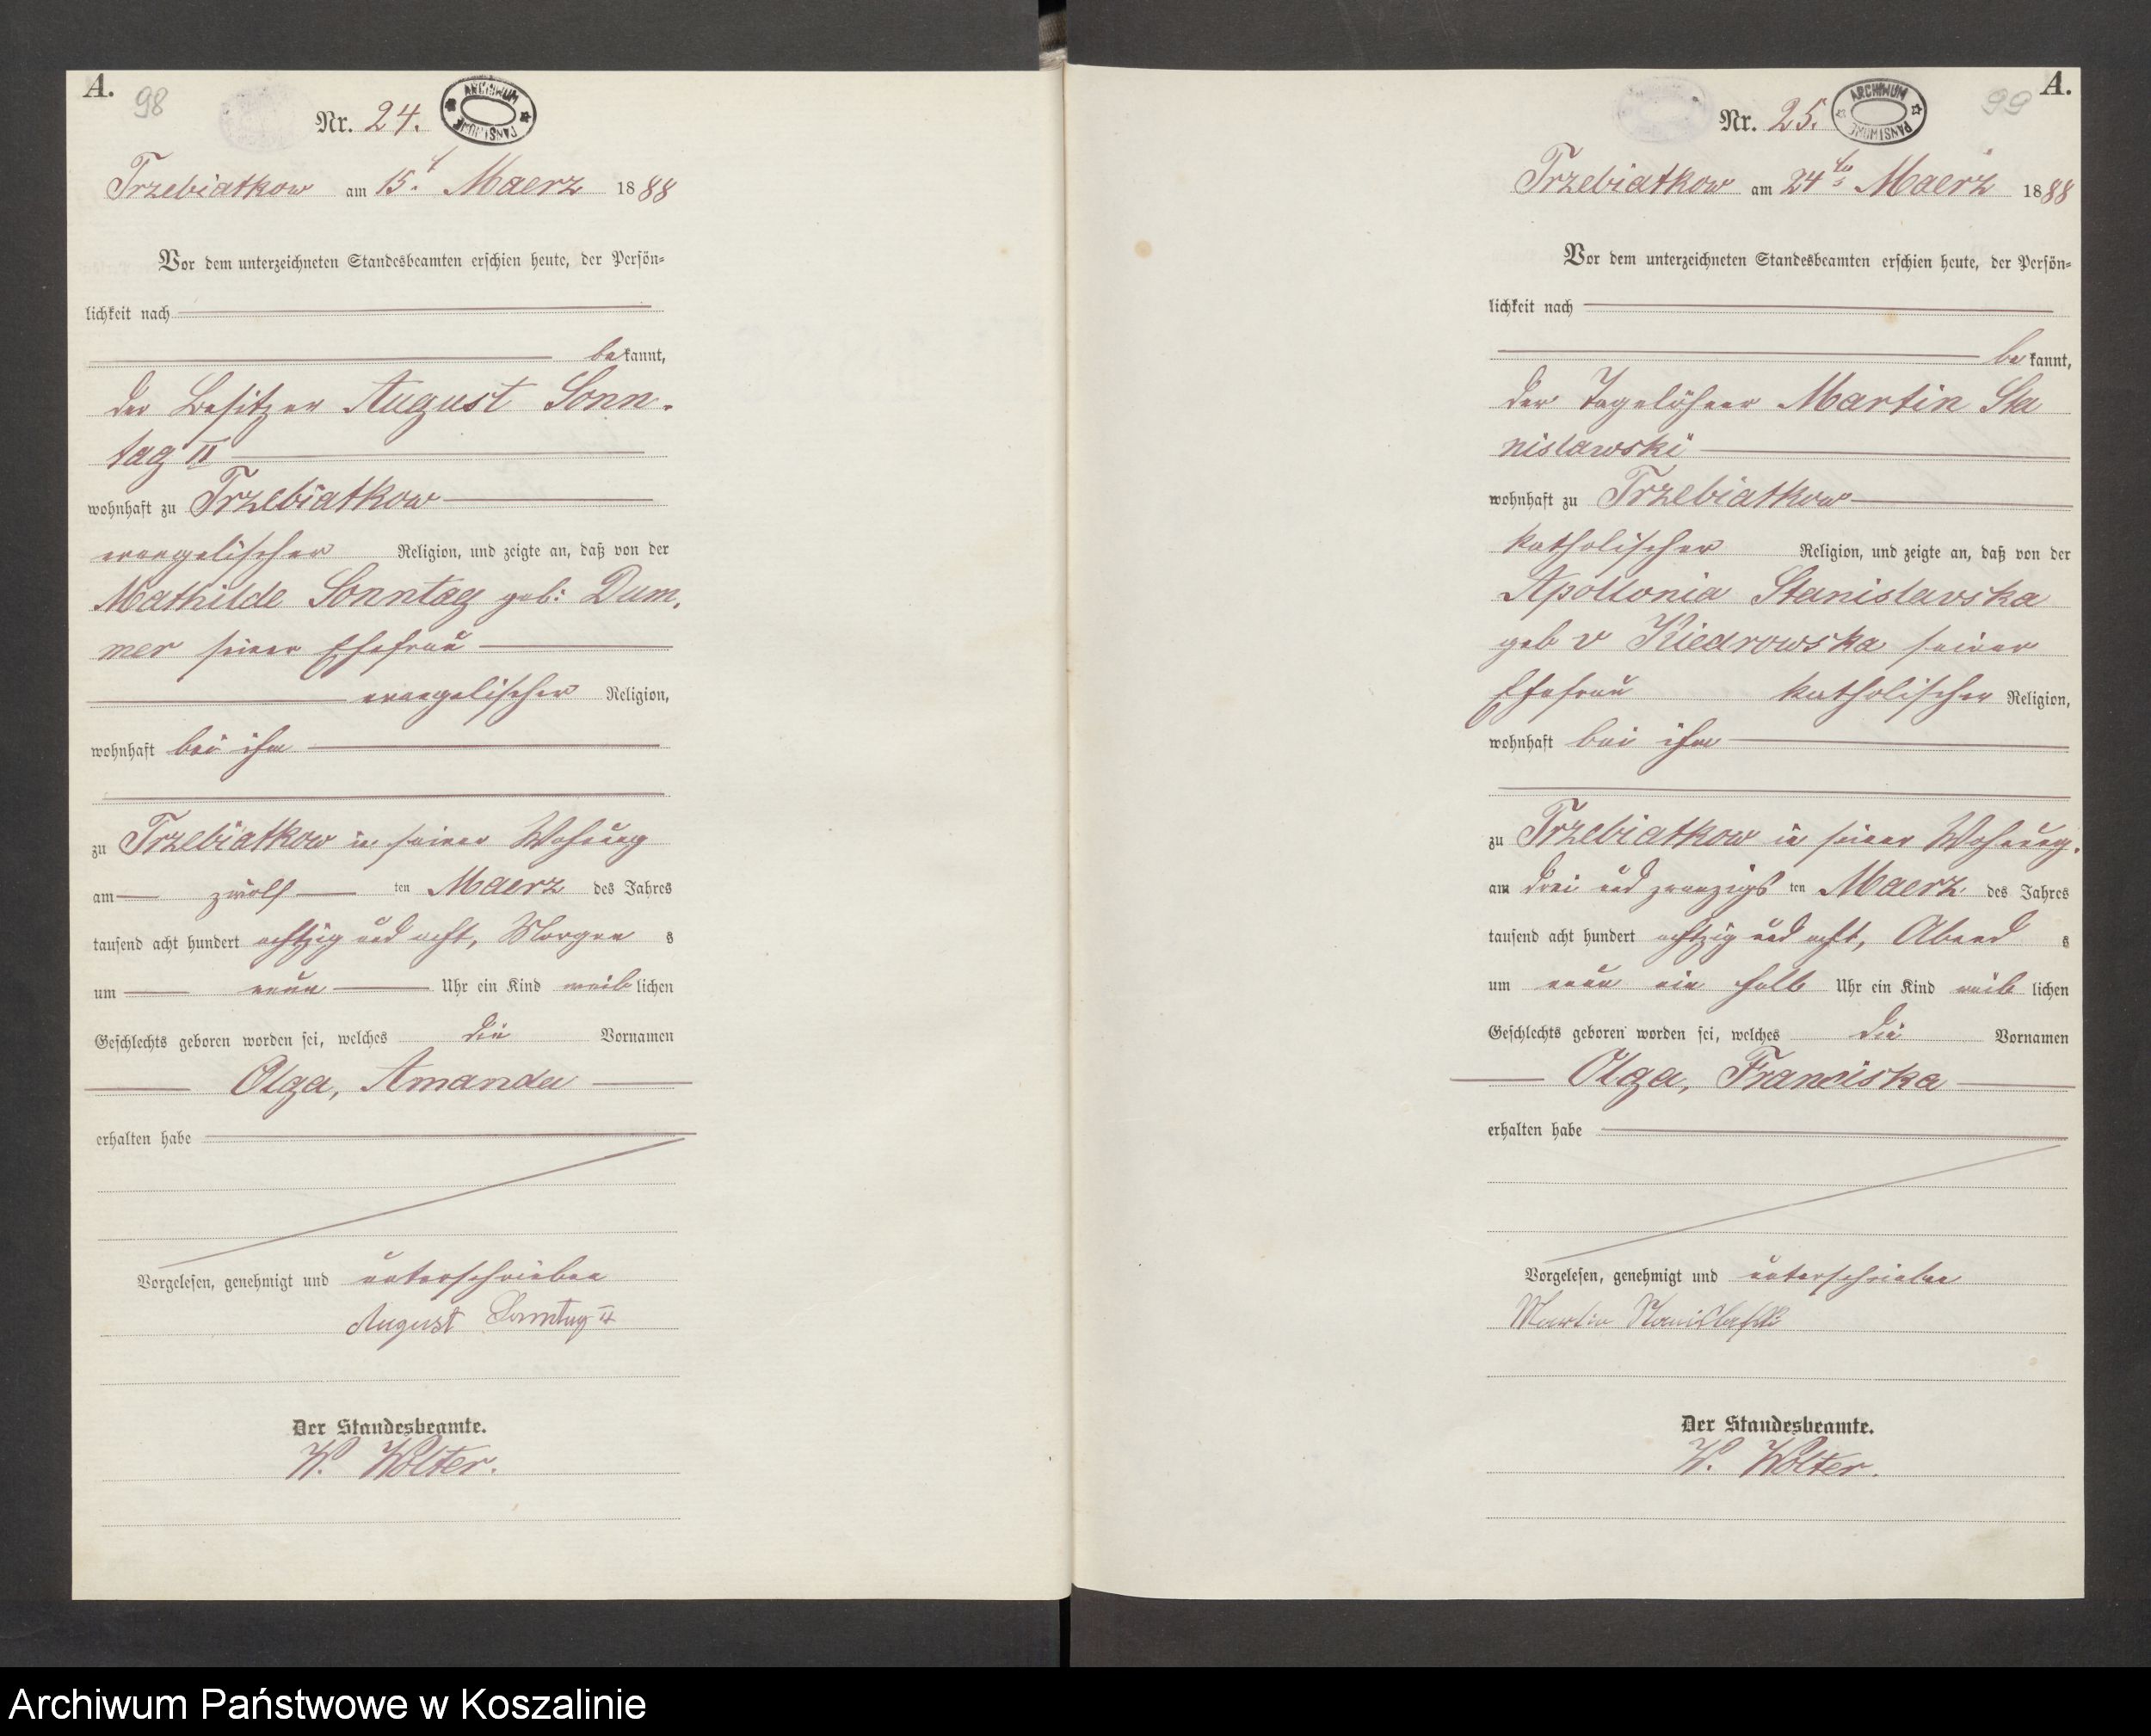 A.
98
Nr. 24.
ARCHIWUM PAŃSTWOWE
Trzebiatkow am 15. Maerz 1888
Vor dem unterzeichneten Standesbeamten erschien heute, der Persön-
lichkeit nach
bekannt,
der Besitzer August Sonn-
tag II
wohnhaft zu Trzebiatkow
evangelischer Religion, und zeigte an, daß von der
Mathilde Sonntag geb: Dum-
mer seiner Ehefrau
evangelischer Religion,
wohnhaft bei ihm
zu Trzebiatkow in seiner Wohnung
am zwölf ten Maerz des Jahres
tausend acht hundert achtzig und acht, Morgen s
um neun Uhr ein Kind weiblichen
Geschlechts geboren worden sei, welches die Vornamen
Olga, Amanda
erhalten habe
Vorgelesen, genehmigt und unterschrieben
August Sonntag II
Der Standesbeamte.
W. Wolter.
A.
99
Nr. 25.
ARCHIWUM PAŃSTWOWE
Trzebiatkow am 24ten Maerz 1888
Vor dem unterzeichneten Standesbeamten erschien heute, der Persön-
lichkeit nach
bekannt,
der Tagelöhner Martin Sta
nislawski
wohnhaft zu Trzebiatkow
katholischer Religion, und zeigte an, daß von der
Apollonia Stanislavska
geb v Kiedrowska seiner
Ehefrau katholischer Religion,
wohnhaft bei ihm
zu Trzebiatkow in seiner Wohnung.
am drei und zwanzigs ten Maerz des Jahres
tausend acht hundert achtzig und acht, Abend s
um neun ein halb Uhr ein Kind weib lichen
Geschlechts geboren worden sei, welches die Vornamen
Olga, Franciska
erhalten habe
Vorgelesen, genehmigt und unterschrieben
Martin
Der Standesbeamte.
W. Wolter.
Archiwum Państwowe w Koszalinie